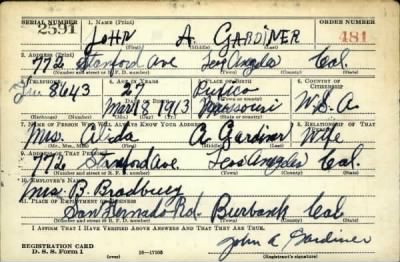 SERIAL NUMBER 1. NAME (Print) ORDER NUMBER
2591 JOHN A. GARDINER 481
(First) (Middle) (Last)
2. ADDRESS (Print)
772 Stanford Ave Los Angeles Cal.
(Number and street or R. F. D. number) (Town) (County) (State)
3. TELEPHONE 4. AGE IN YEARS 5. PLACE OF BIRTH 6. COUNTRY OF CITIZENSHIP
8643 27
DATE OF BIRTH (Town or county)
Mar 18 1913 Missouri U.S.A.
(Exchange) (Number) (Mo.) (Day) (Yr.) (State or country)
7. NAME OF PERSON WHO WILL ALWAYS KNOW YOUR ADDRESS 8. RELATIONSHIP OF THAT PERSON
Mrs. Gardiner Wife
(Mr., Mrs., Miss) (First) (Middle) (Last)
9. ADDRESS OF THAT PERSON
772 Stanford Ave. Los Angeles Cal.
(Number and street or R. F. D. number) (Town) (County) (State)
10. EMPLOYER'S NAME
Mrs. B. Bradbury
11. PLACE OF EMPLOYMENT OR BUSINESS
San Fernando Rd. Burbank Cal
(Number and street or R. F. D. number) (Town) (County) (State)
I AFFIRM THAT I HAVE VERIFIED ABOVE ANSWERS AND THAT THEY ARE TRUE.
John A Gardiner
REGISTRATION CARD
D. S. S. Form 1 (over) (Registrant's signature)